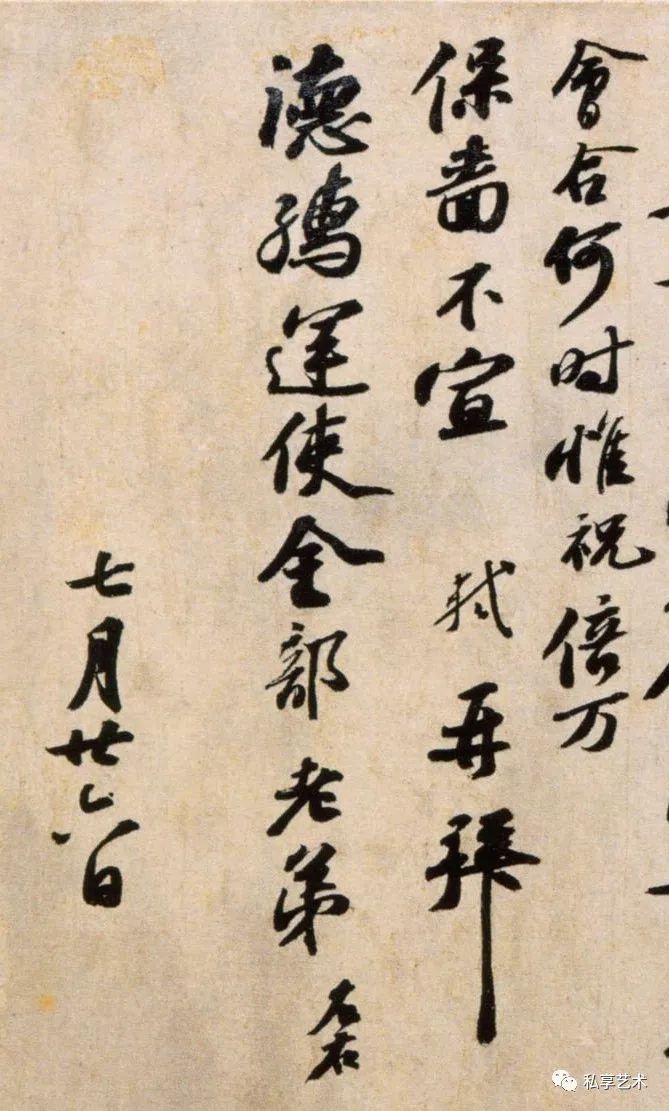 會合何时惟祝倍万
保嗇不宣 軾再拜
德孺運使金部老弟 左右
七月廿六日
私享艺术